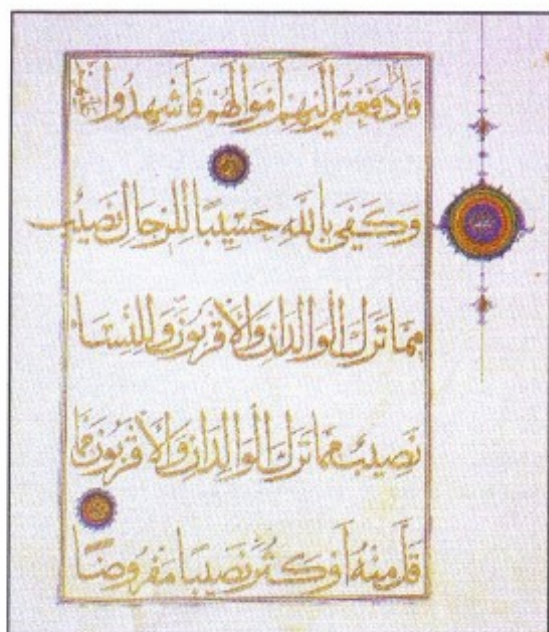 فَإِذَا دَفَعْتُمْ إِلَيْهِمْ أَمْوَالَهُمْ فَأَشْهِدُوا عَلَيْهِمْ
وَكَفَى بِاللَّهِ حَسِيبًا لِلرِّجَالِ نَصِيبٌ
مِمَّا تَرَكَ الْوَالِدَانِ وَالْأَقْرَبُونَ وَلِلنِّسَاءِ
نَصِيبٌ مِمَّا تَرَكَ الْوَالِدَانِ وَالْأَقْرَبُونَ مِمَّا
قَلَّ مِنْهُ أَوْ كَثُرَ نَصِيبًا مَفْرُوضًا